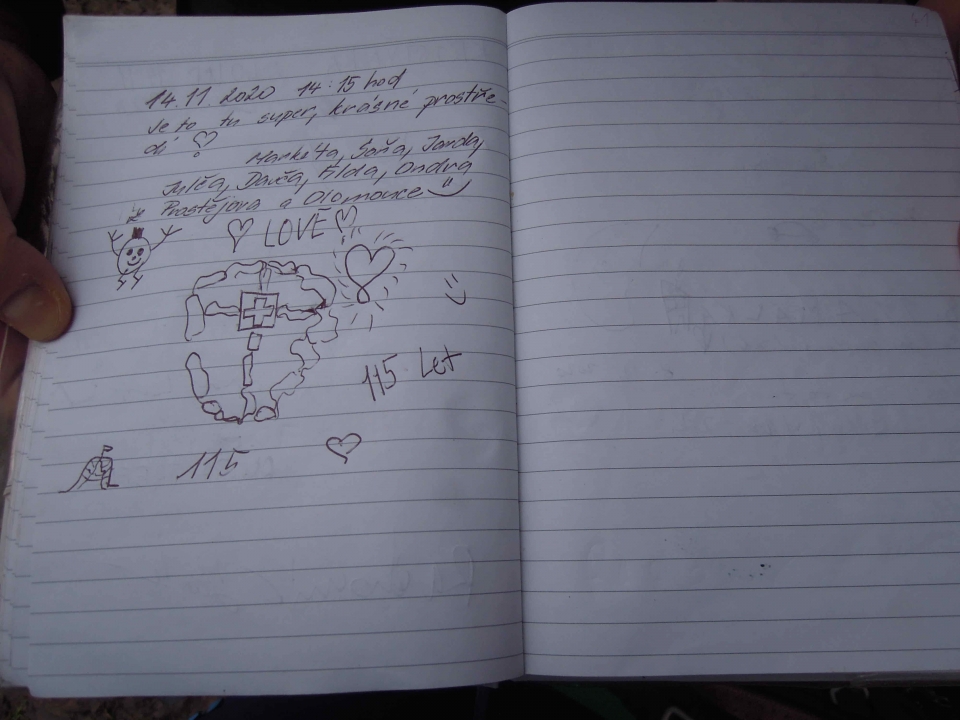 14.11 2020 14:15 hod
Je to tu super, krásné prostře-
dí
Markéta, Soňa, Janda,
Julča, Davča, Elda, Ondra
Prostějova a Olomouce
LOVE
115 Let
115